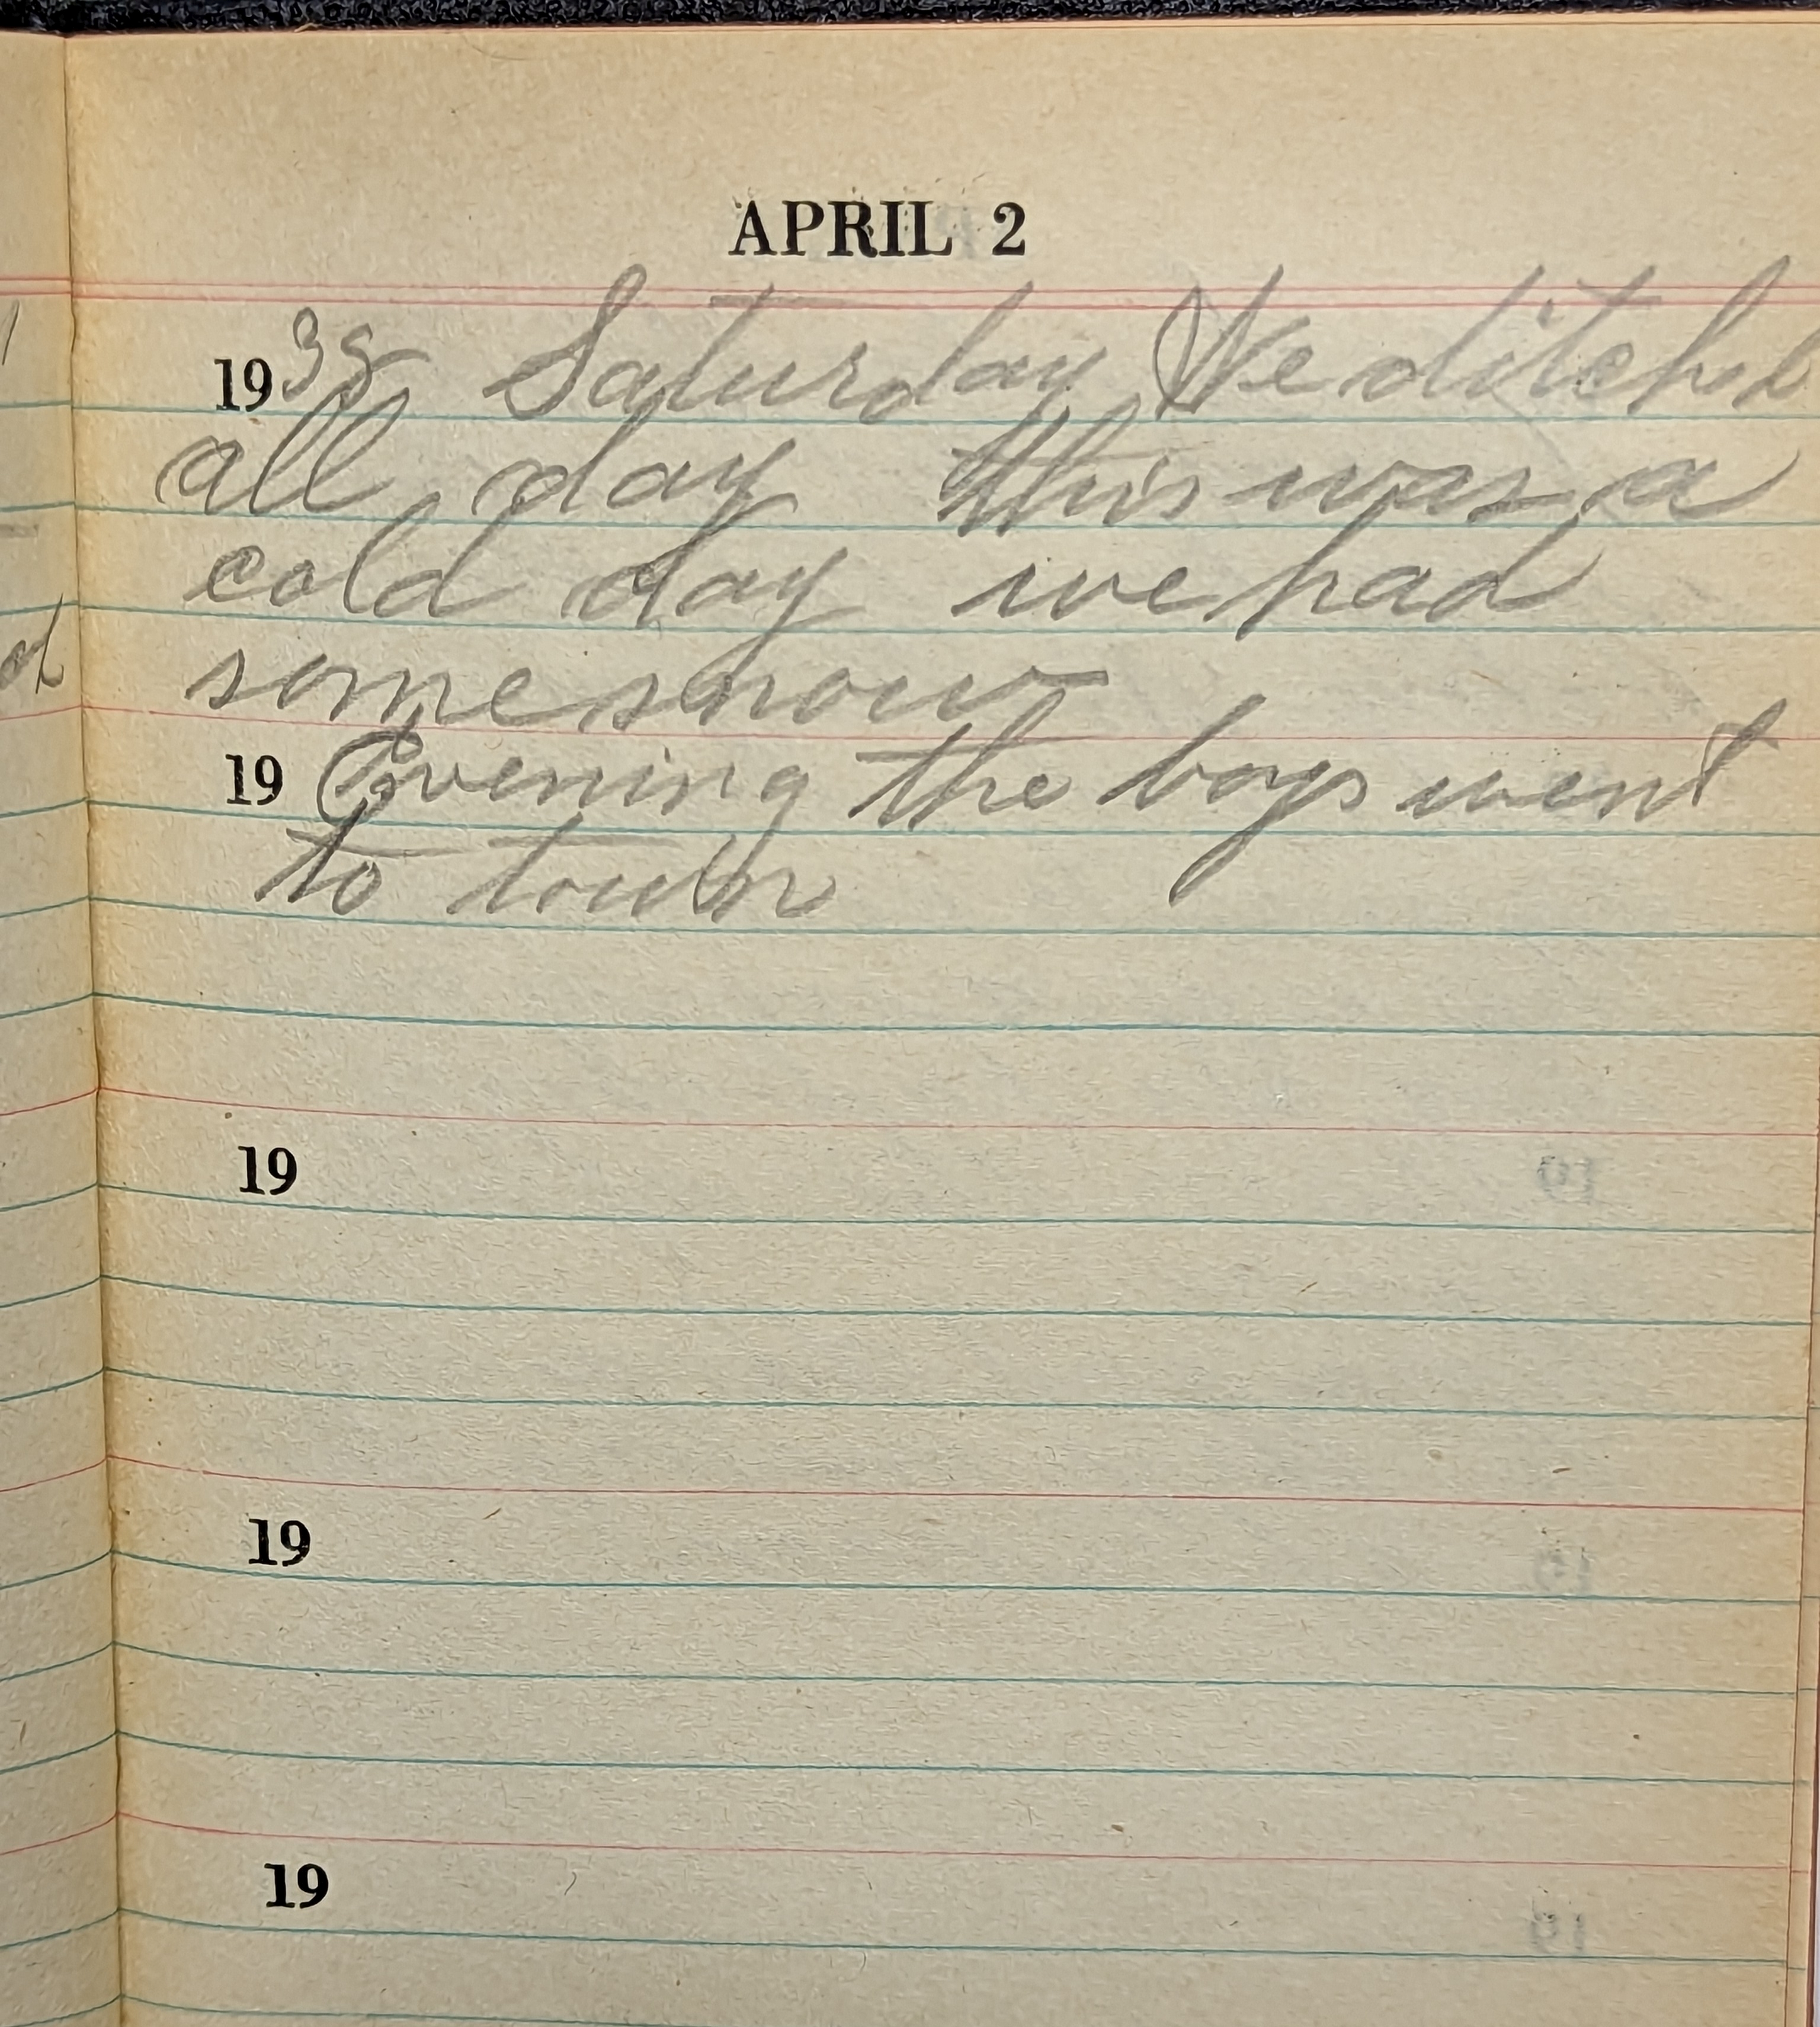 APRIL 2
1938 Saturday We ditched
all day this was a
cold day we had
some snow
19 Evening the boys went
to town
19
19
19